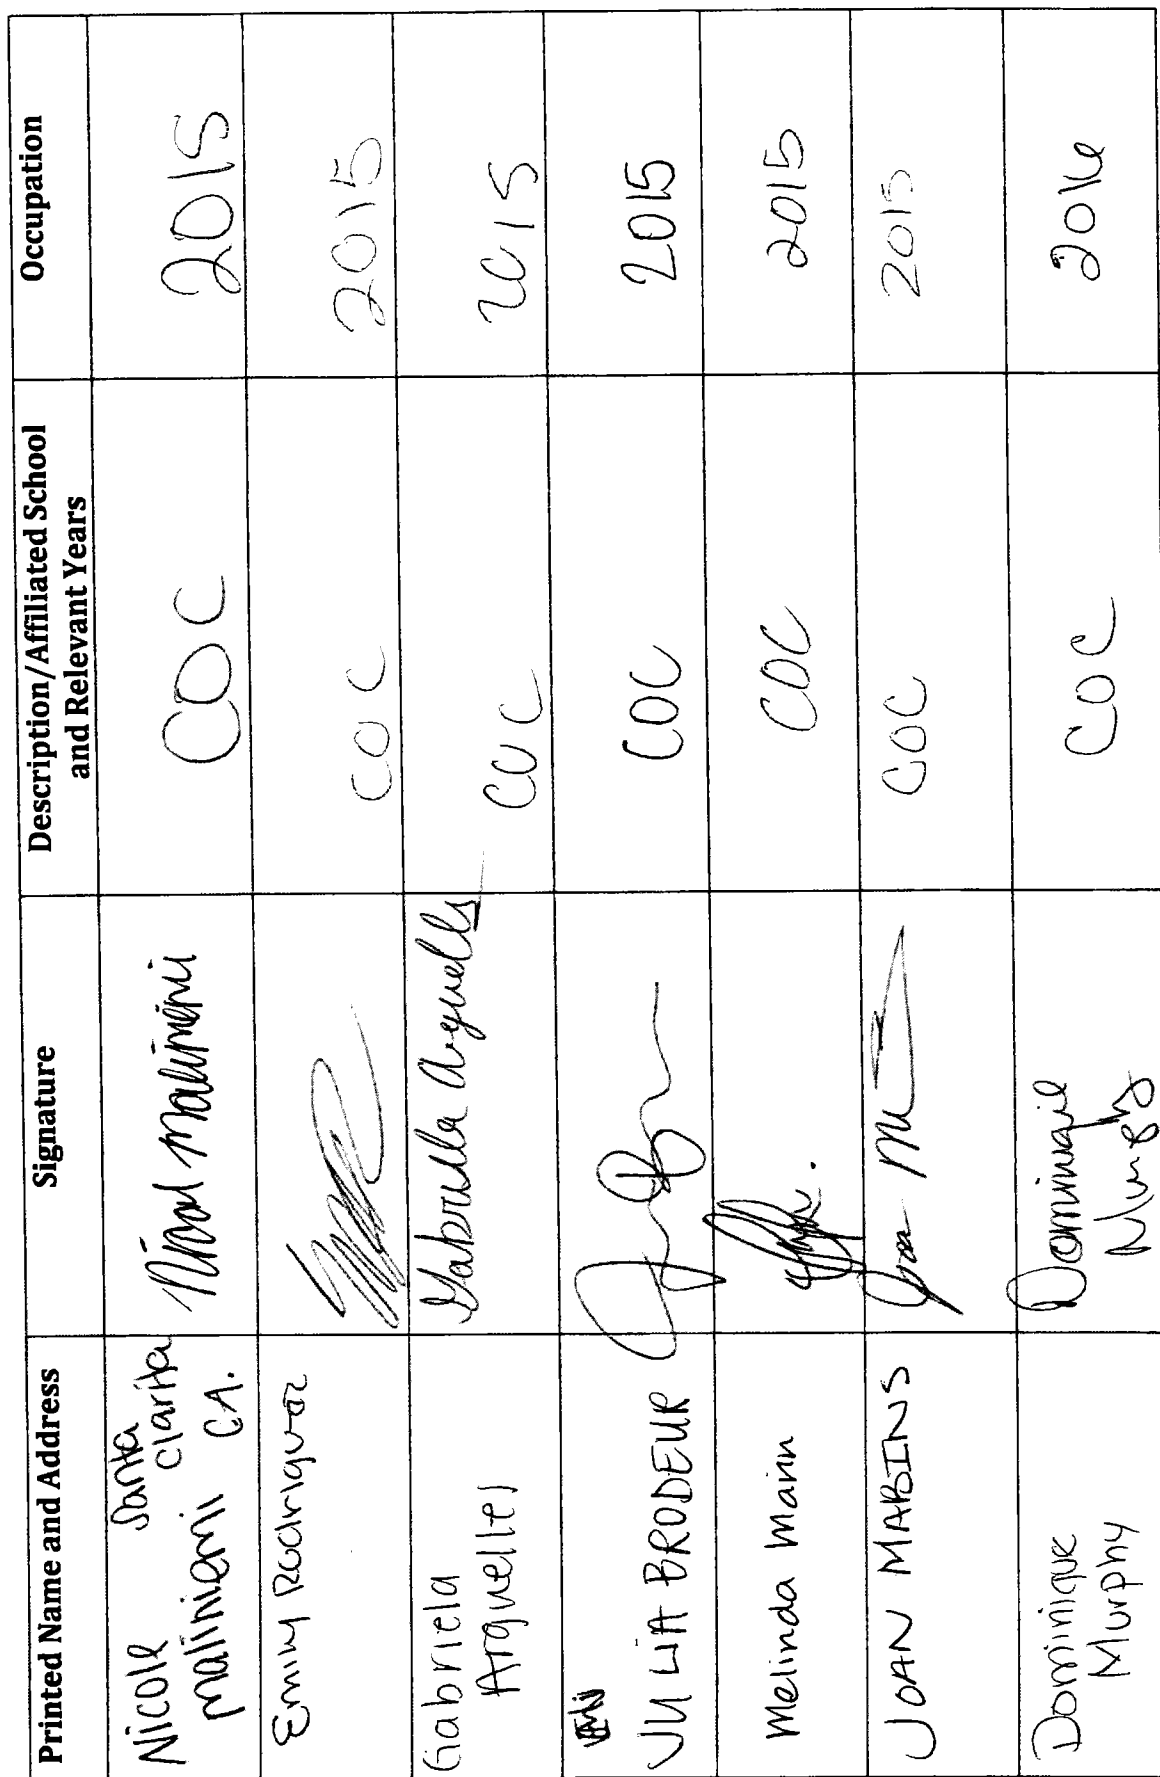 Printed Name and Address
Signature
Description/Affiliated School
and Relevant Years
Occupation
Nicole Santa
Clarita
Maliniemi CA.
Nicol Maliniemi
COC
2015
Emily Rodriguez
COC
2015
Gabriela
Arguelles
Gabriella Arguells
COC
2015
JULIA BRODEUR
COC
2015
Melinda Mann
COC
2015
JOAN MABINS
COC
2015
Dominique
Murphy
Dominique
Murphy
COC
2016